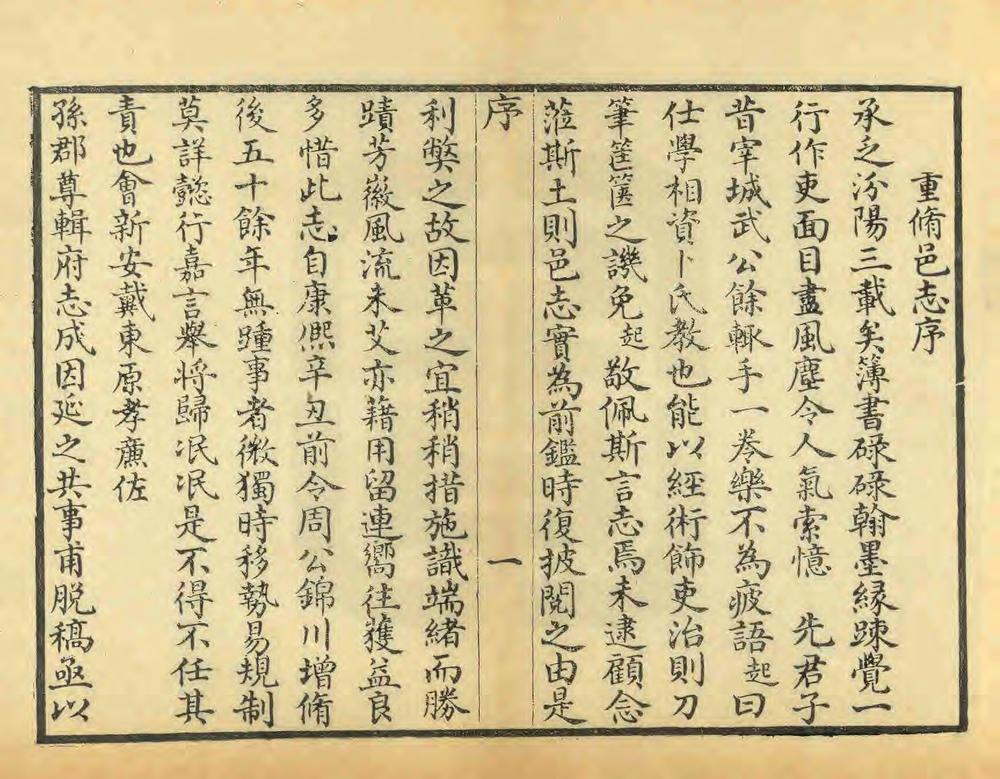 重脩邑志序
承之汾陽三載矣簿書碌碌翰墨緣踈覺一
行作吏面目盡風塵令人氣索憶　先君子
昔宰城武公餘輒手一卷樂不為疲語起曰
仕學相資卜氏教也能以經術飾吏治則刀
筆筐篋之譏免起敬佩斯言志焉未逮顧念
蒞斯土則邑志實為前鑑時復披閱之由是
序　一
利獘之故因革之宜稍稍措施識端緒而勝
蹟芳徽風流未艾亦藉用留連嚮往獲益良
多惜此志自康熈辛丑前令周公錦川增脩
後五十餘年無踵事者微獨時移勢易規制
莫詳懿行嘉言舉將歸泯泯是不得不任其
責也會新安戴東原孝廉佐
孫郡尊輯府志成因延之共事甫脫稿亟以